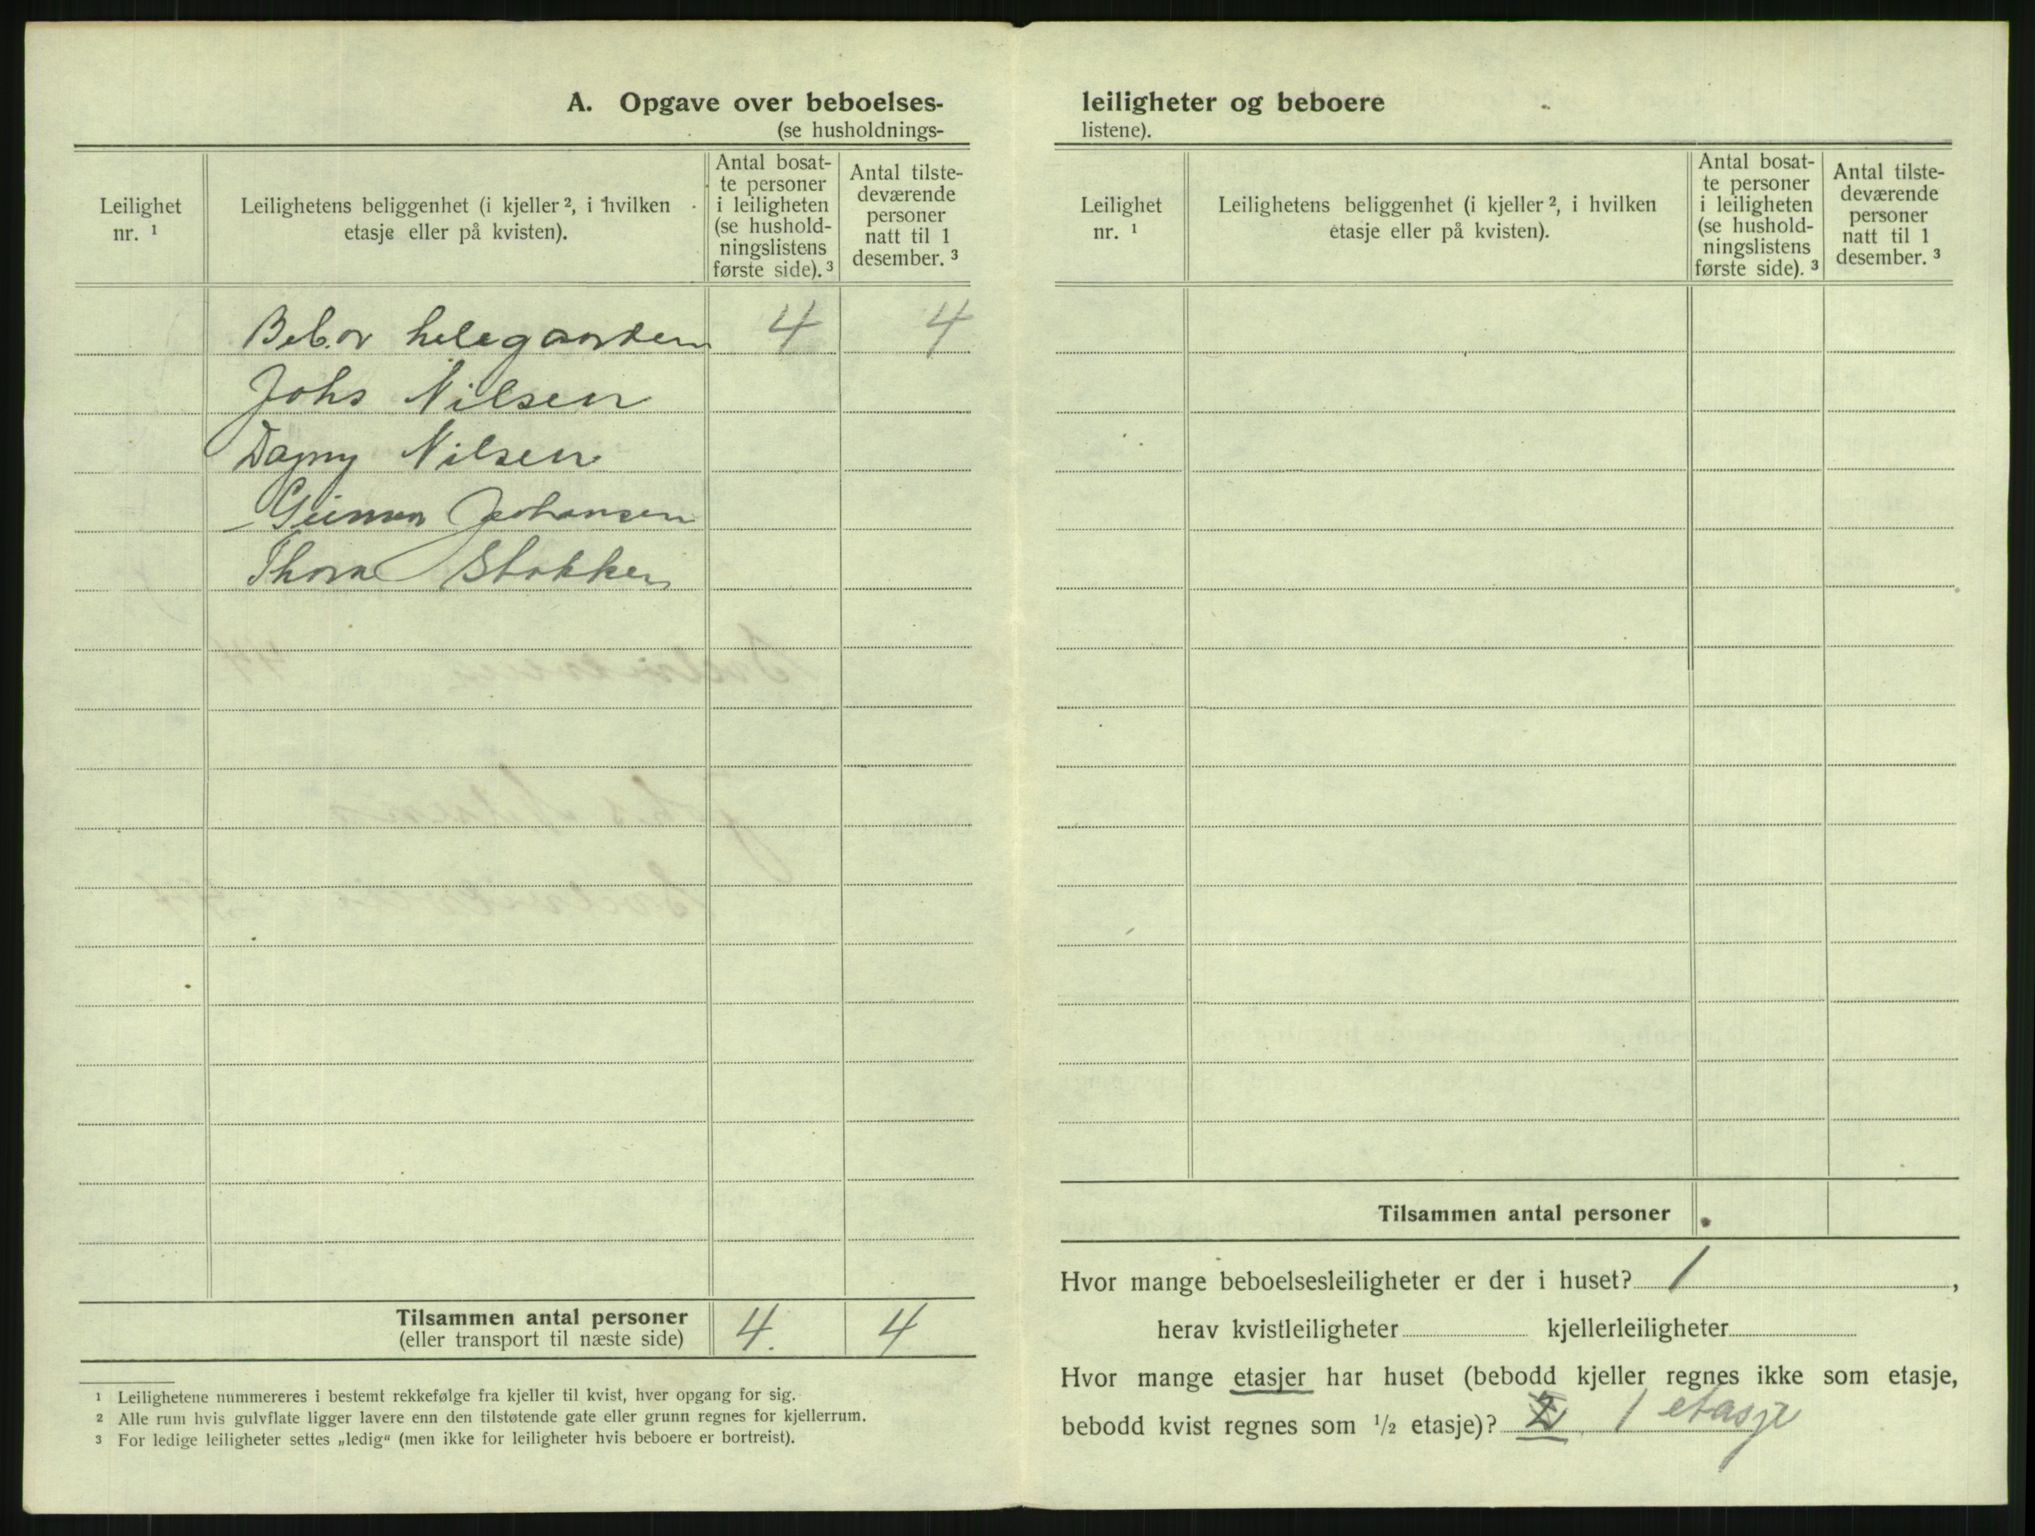 A. Opgave over beboelses-
(se husholdnings-
Leilighet
nr. ¹
Leilighetens beliggenhet (i kjeller ², i hvilken
etasje eller på kvisten).
Antal bosat-
te personer
i leiligheten
(se hushold-
ningslistens
første side). ³
Antal tilste-
deværende
personer
natt til 1
desember. ³
Bebor helegaarden 4 4
Johs Nilsen
Dagny Nilsen
Johansen
Thora Stokken
Tilsammen antal personer
(eller transport til næste side) 4. 4
¹ Leilighetene nummereres i bestemt rekkefølge fra kjeller til kvist, hver opgang for sig.
² Alle rum hvis gulvflate ligger lavere enn den tilstøtende gate eller grunn regnes for kjellerrum.
³ For ledige leiligheter settes „ledig“ (men ikke for leiligheter hvis beboere er bortreist).
leiligheter og beboere
listene).
Leilighet
nr. ¹
Leilighetens beliggenhet (i kjeller ², i hvilken
etasje eller på kvisten).
Antal bosat-
te personer
i leiligheten
(se hushold-
ningslistens
første side). ³
Antal tilste-
deværende
personer
natt til 1
desember. ³
Tilsammen antal personer
Hvor mange beboelsesleiligheter er der i huset? 1,
herav kvistleiligheter kjellerleiligheter
Hvor mange etasjer har huset (bebodd kjeller regnes ikke som etasje,
bebodd kvist regnes som ½ etasje)? 2 1 etasje